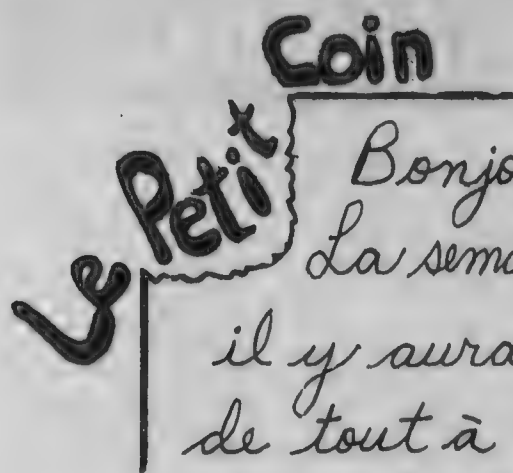 Le Petit Coin
Bonjo
La sema
il y aura
de tout à